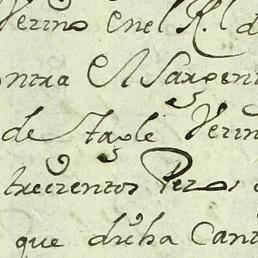 Vezino en el Rl. d
ontra El Sargent
de Tagle Vezin
treczentos Pezos
que dicha Cant